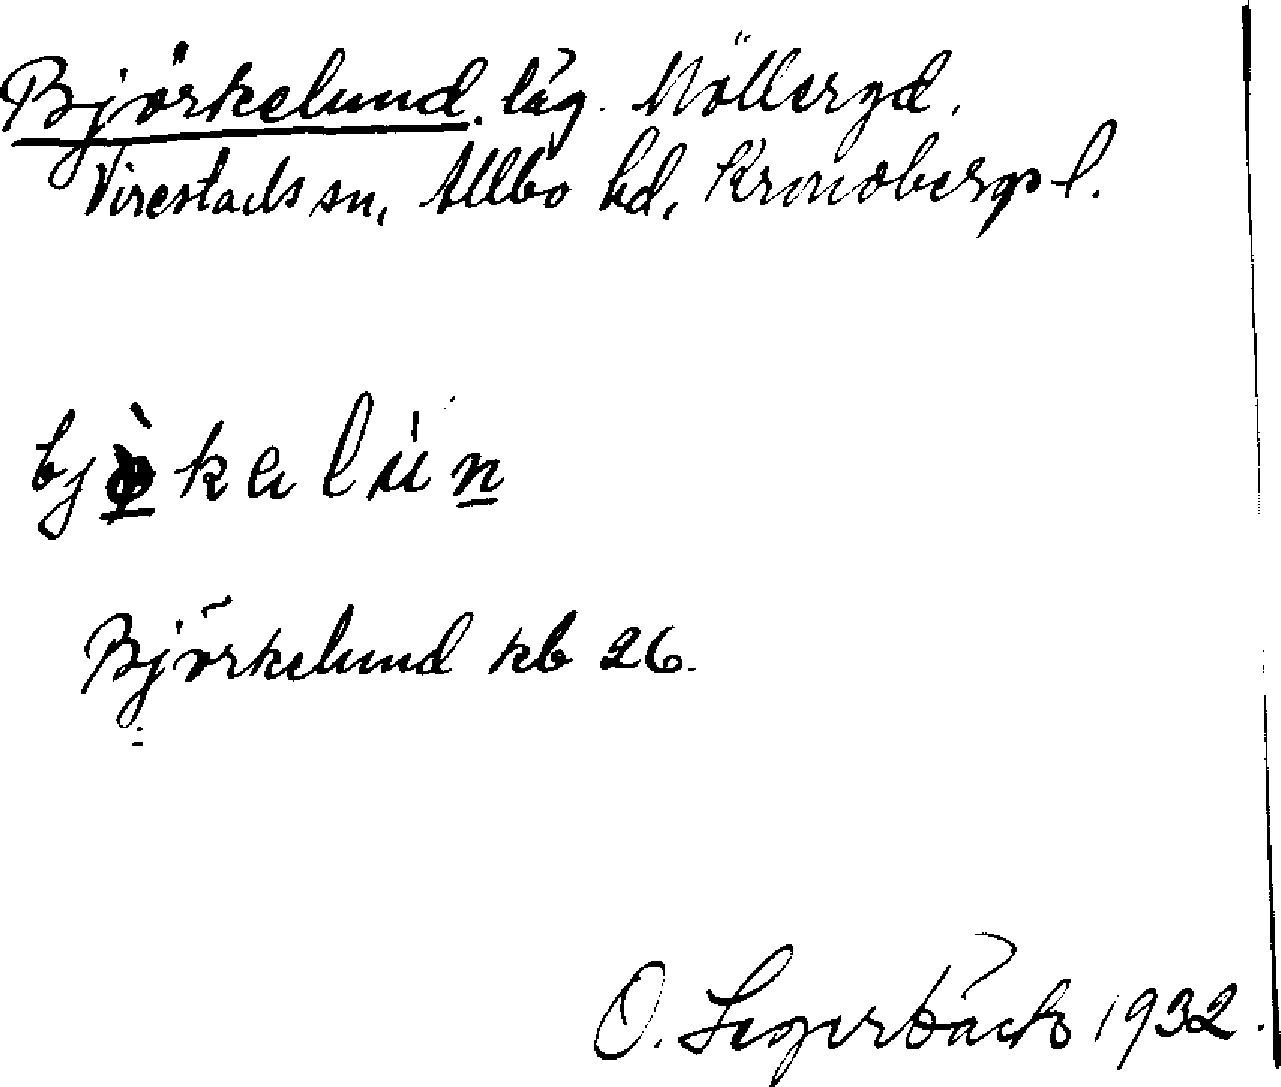 Björkelund. läg. Mölleryd.
Virestads sn, Allbo hd, Kronobergs l.
bjø̀kalún
Björkelund kb 26.
O. Segerbäck 1932.